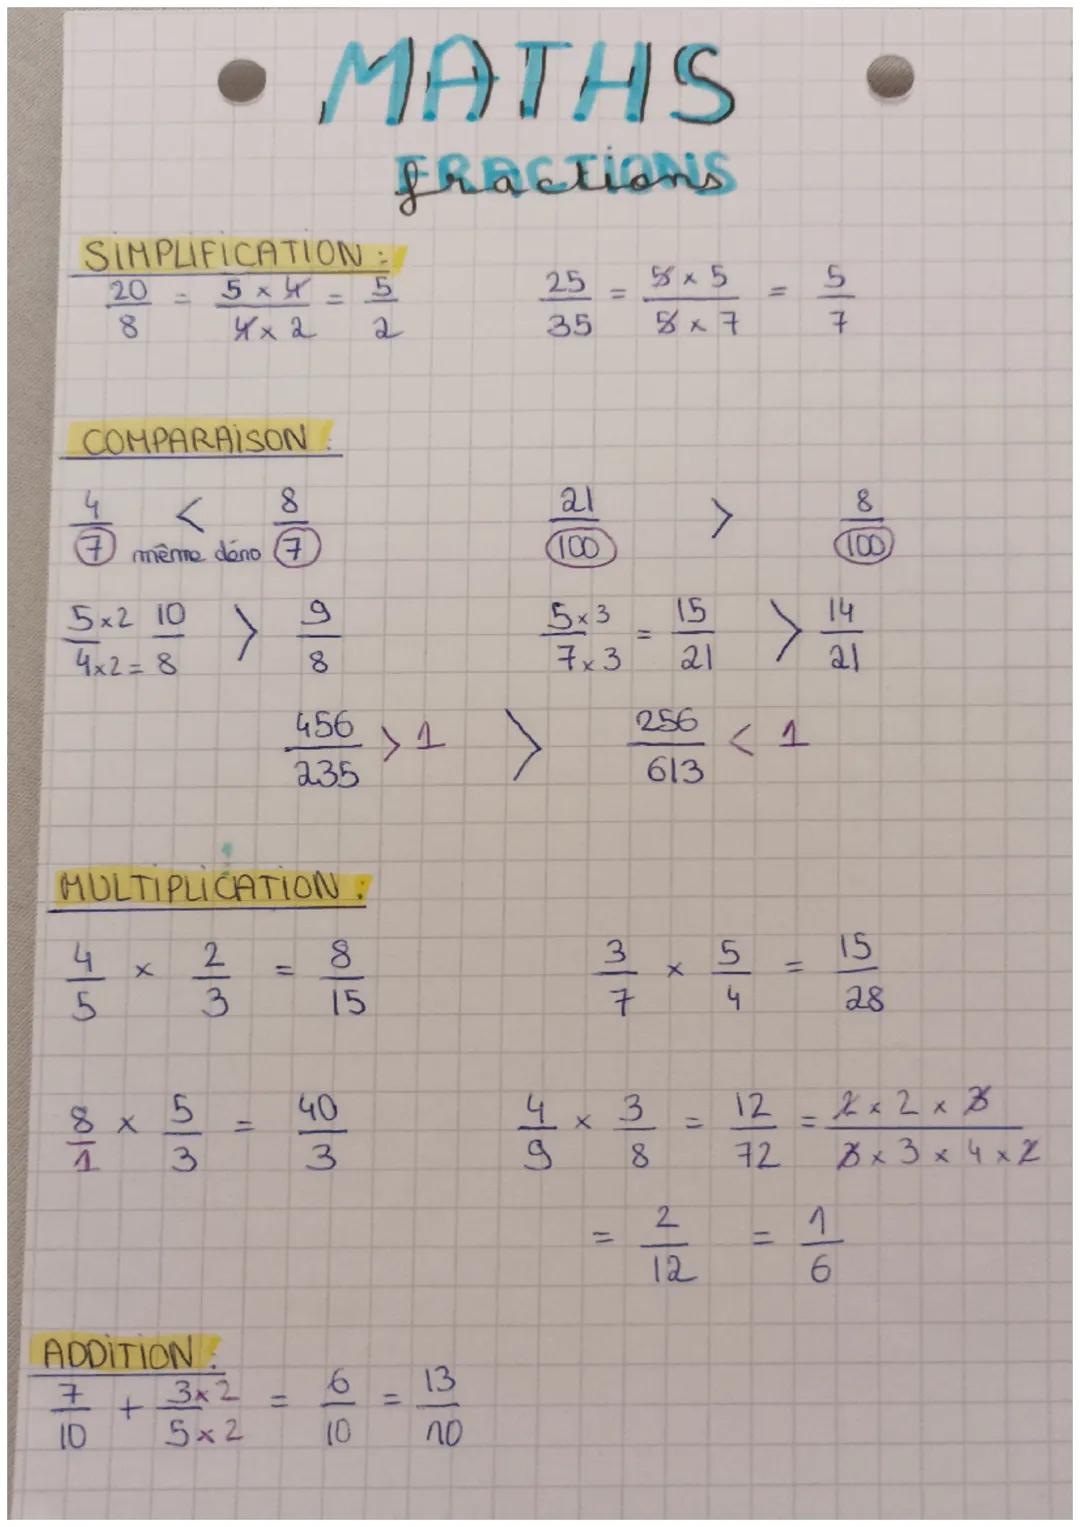 MATHS
FRACTIONS
fractions
SIMPLIFICATION :
20/8 = 5 × 4/4 × 2 = 5/2    25/35 = 5 × 5/5 × 7 = 5/7
COMPARAISON :
4/7 < 8/7 même déno    21/100 > 8/100
5×2/4×2 = 10/8 > 9/8    5×3/7×3 = 15/21 > 14/21
456/235 > 1 > 256/613 < 1
MULTIPLICATION :
4/5 × 2/3 = 8/15    3/7 × 5/4 = 15/28
8/1 × 5/3 = 40/3    4/9 × 3/8 = 12/72 = 2 × 2 × 3/3 × 3 × 4 × 2
= 2/12 = 1/6
ADDITION :
7/10 + 3×2/5×2 = 6/10 = 13/10